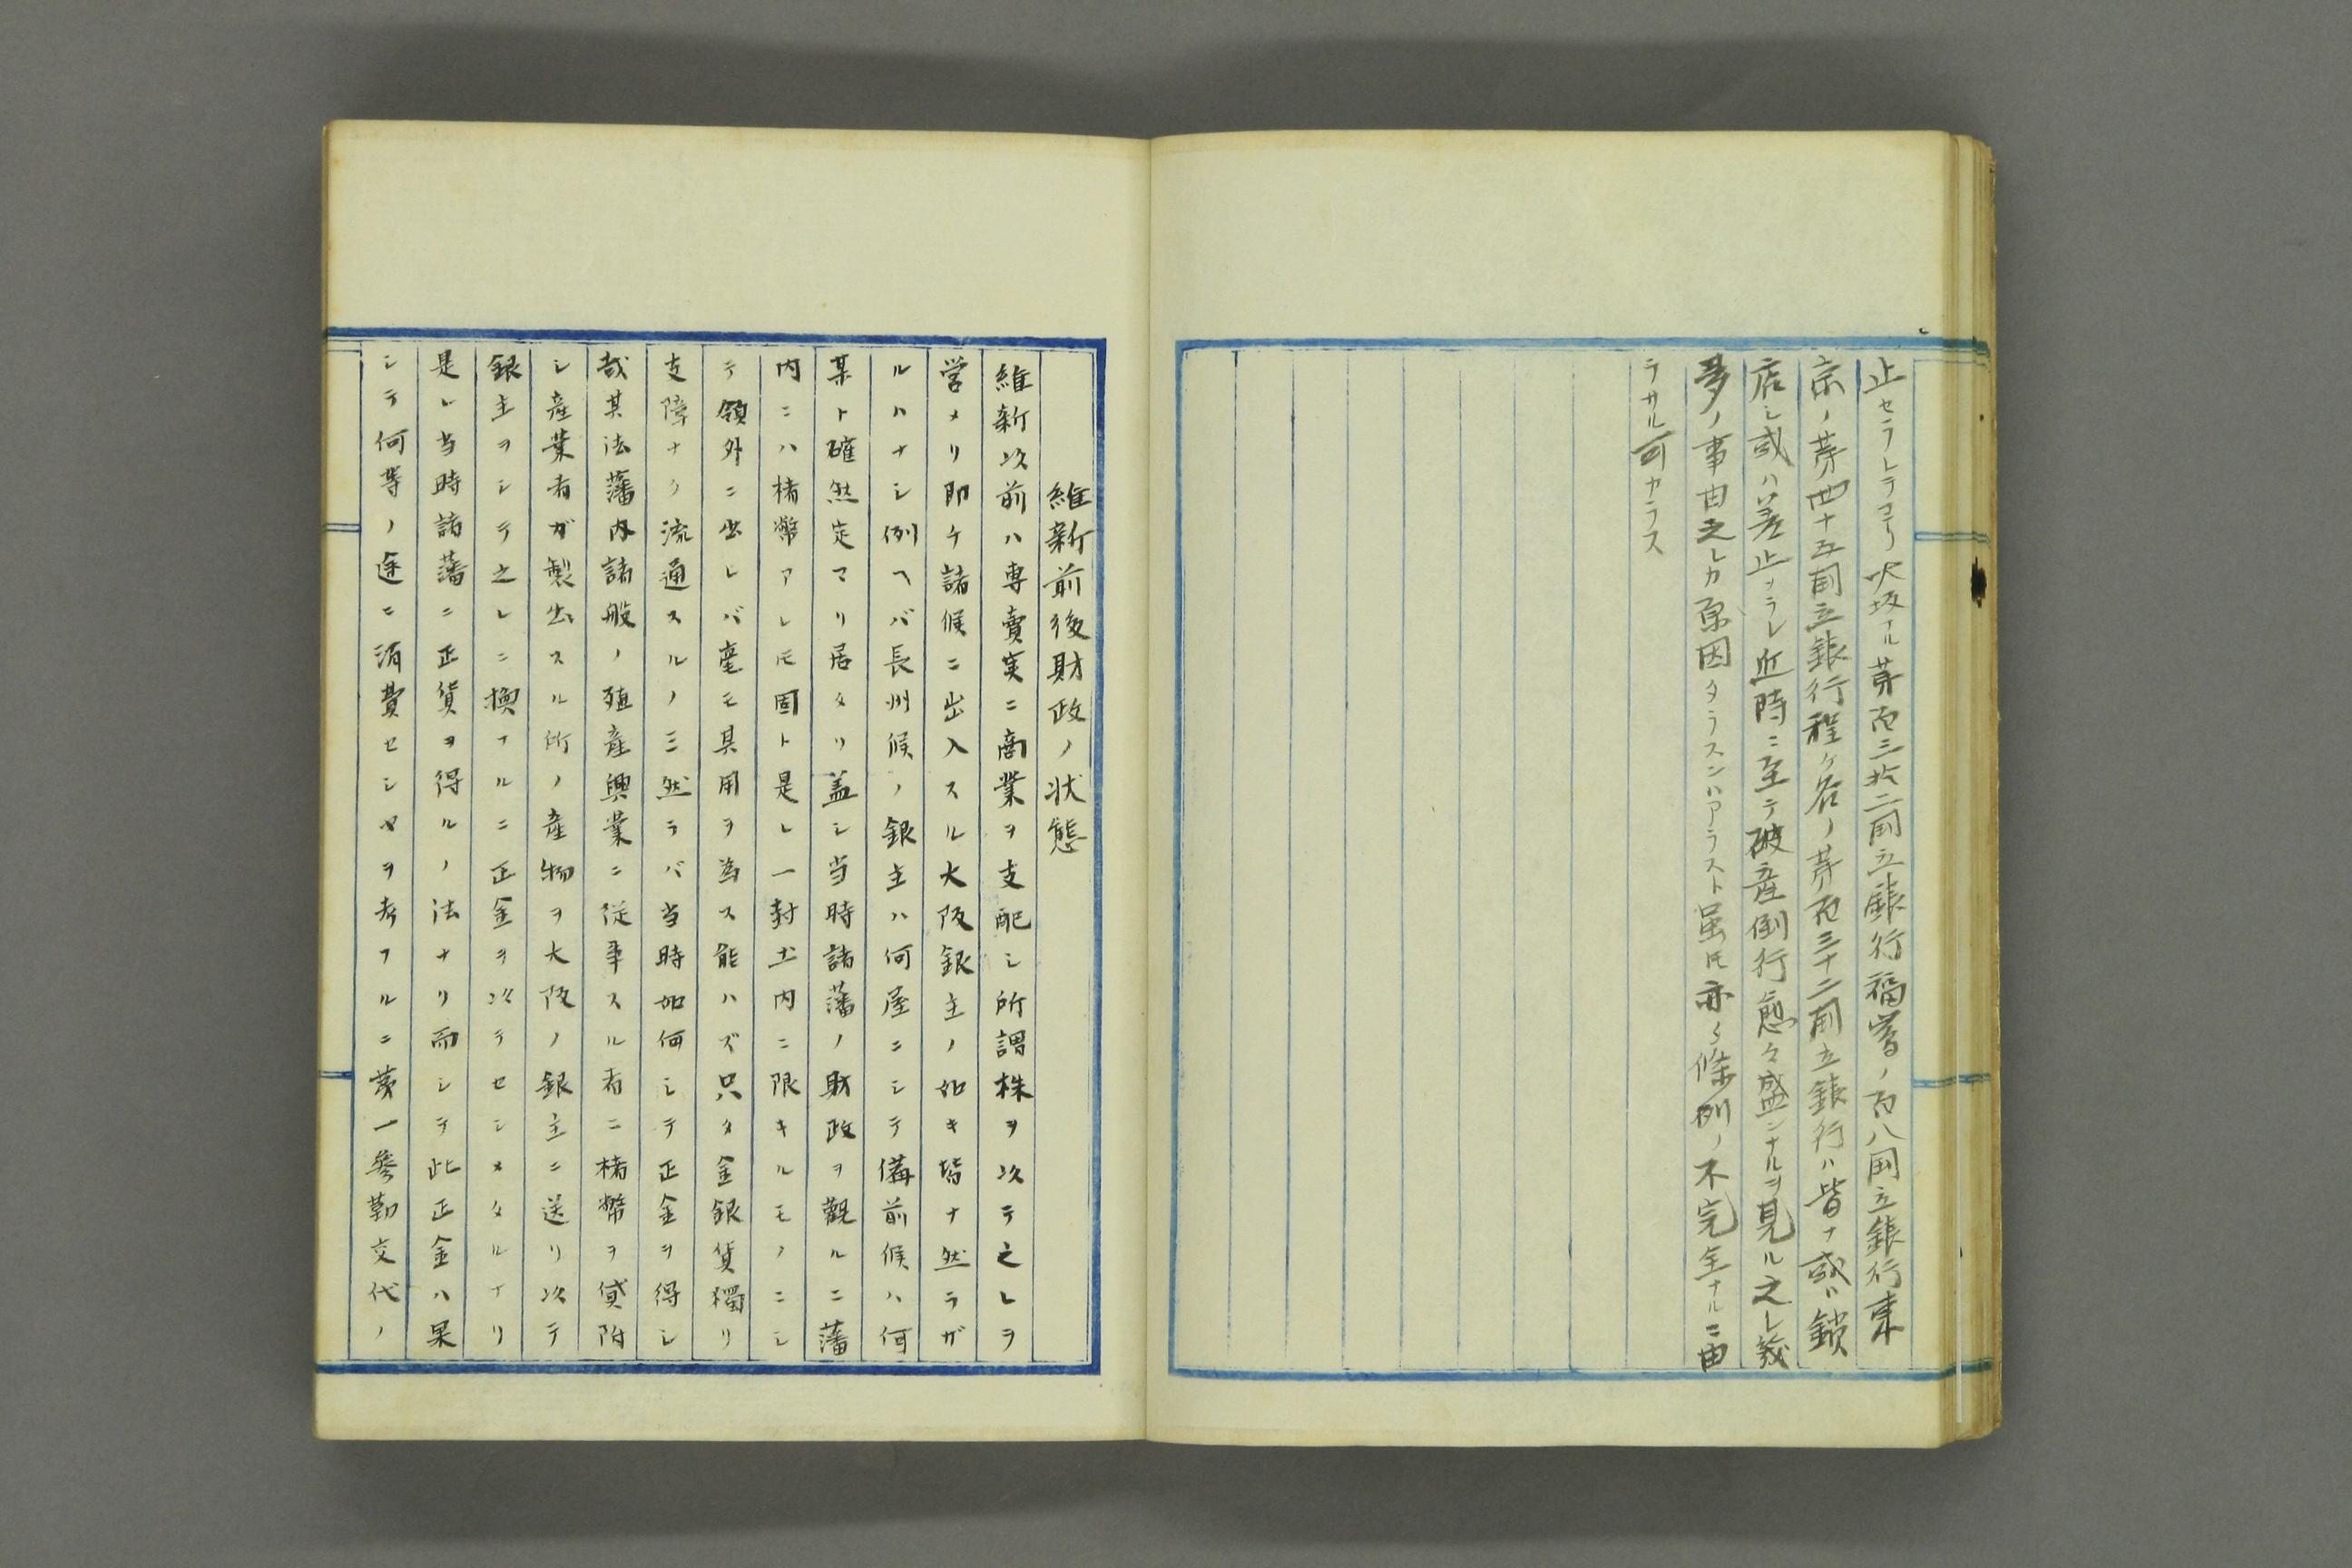 止セラレテヨリ大坂ナル第百三拾二国立銀行福島ノ百八国立銀行東
京ノ第四十五国立銀行程ケ谷ノ第百三十二国立銀行ハ皆ナ或ハ鎖
店シ或ハ差止メラレ近時ニ至テ破産倒行愈々盛ンナルヲ見ル之レ幾
多ノ事由之レカ原因タラスンハアラスト虽モ亦タ條例ノ不完全ナルニ由
ラサル可カラス
維新前後財政ノ状態
維新以前ハ専賣実ニ商業ヲ支配シ所謂株ヲ以テ之レヲ
営メリ即チ諸候ニ出入スル大阪銀主ノ如キ皆ナ然ラザ
ルハナシ例ヘバ長州候ノ銀主ハ何屋ニシテ備前候ハ何
某ト確然定マリ居タリ盖シ当時諸藩ノ財政ヲ觀ルニ藩
内ニハ楮幣アレ𪜈固ト是レ一封土内ニ限キルモノニシ
テ領外ニ出レバ毫モ其用ヲ為ス能ハズ只タ金銀貨獨リ
支障ナク流通スルノミ然ラバ当時如何シテ正金ヲ得シ
哉其法藩内諸般ノ殖産興業ニ従事スル者ニ楮幣ヲ貸附
シ産業者ガ製出スル所ノ産物ヲ大阪ノ銀主ニ送リ以テ
銀主ヲシテ之レニ換フルニ正金ヲ以テセシメタルナリ
是レ当時諸藩ニ正貨ヲ得ルノ法ナリ而シテ此正金ハ果
シテ何等ノ途ニ消費セシヤヲ考フルニ第一參勤交代ノ